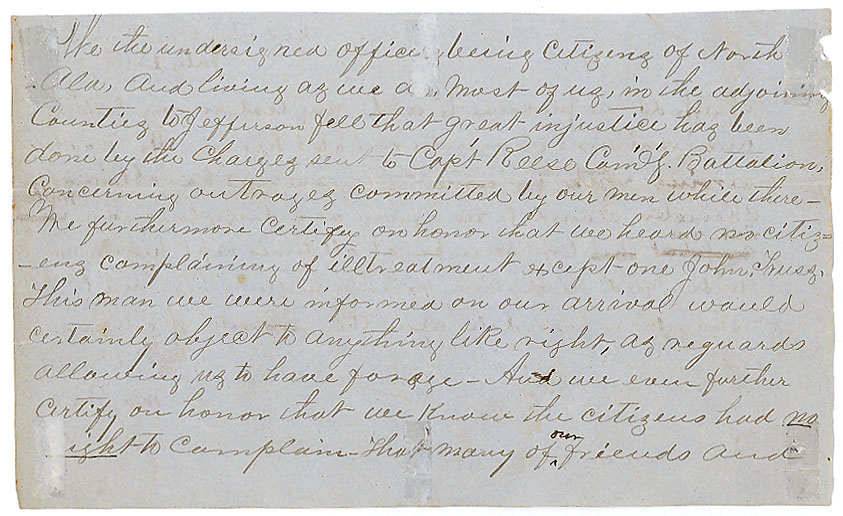 We the undersigned officers being Citizens of North
Ala, And living as we do, Most of us, in the adjoining
Counties to Jefferson fell that great injustice has been
done by the Charges sent to Capt Reese Com'd'g. Battalion,
Concerning outrages committed by our men while there -
We furthermore Certify on honor that we heard no citiz-
-ens complaining of illtreatment except one John,
This man we were informed on our arrival would
certainly object to anything like right, as reguards
allowing us to have forage - And we even further
Certify on honor that we Know the citizens had no
right to Complain - That many of our friends and